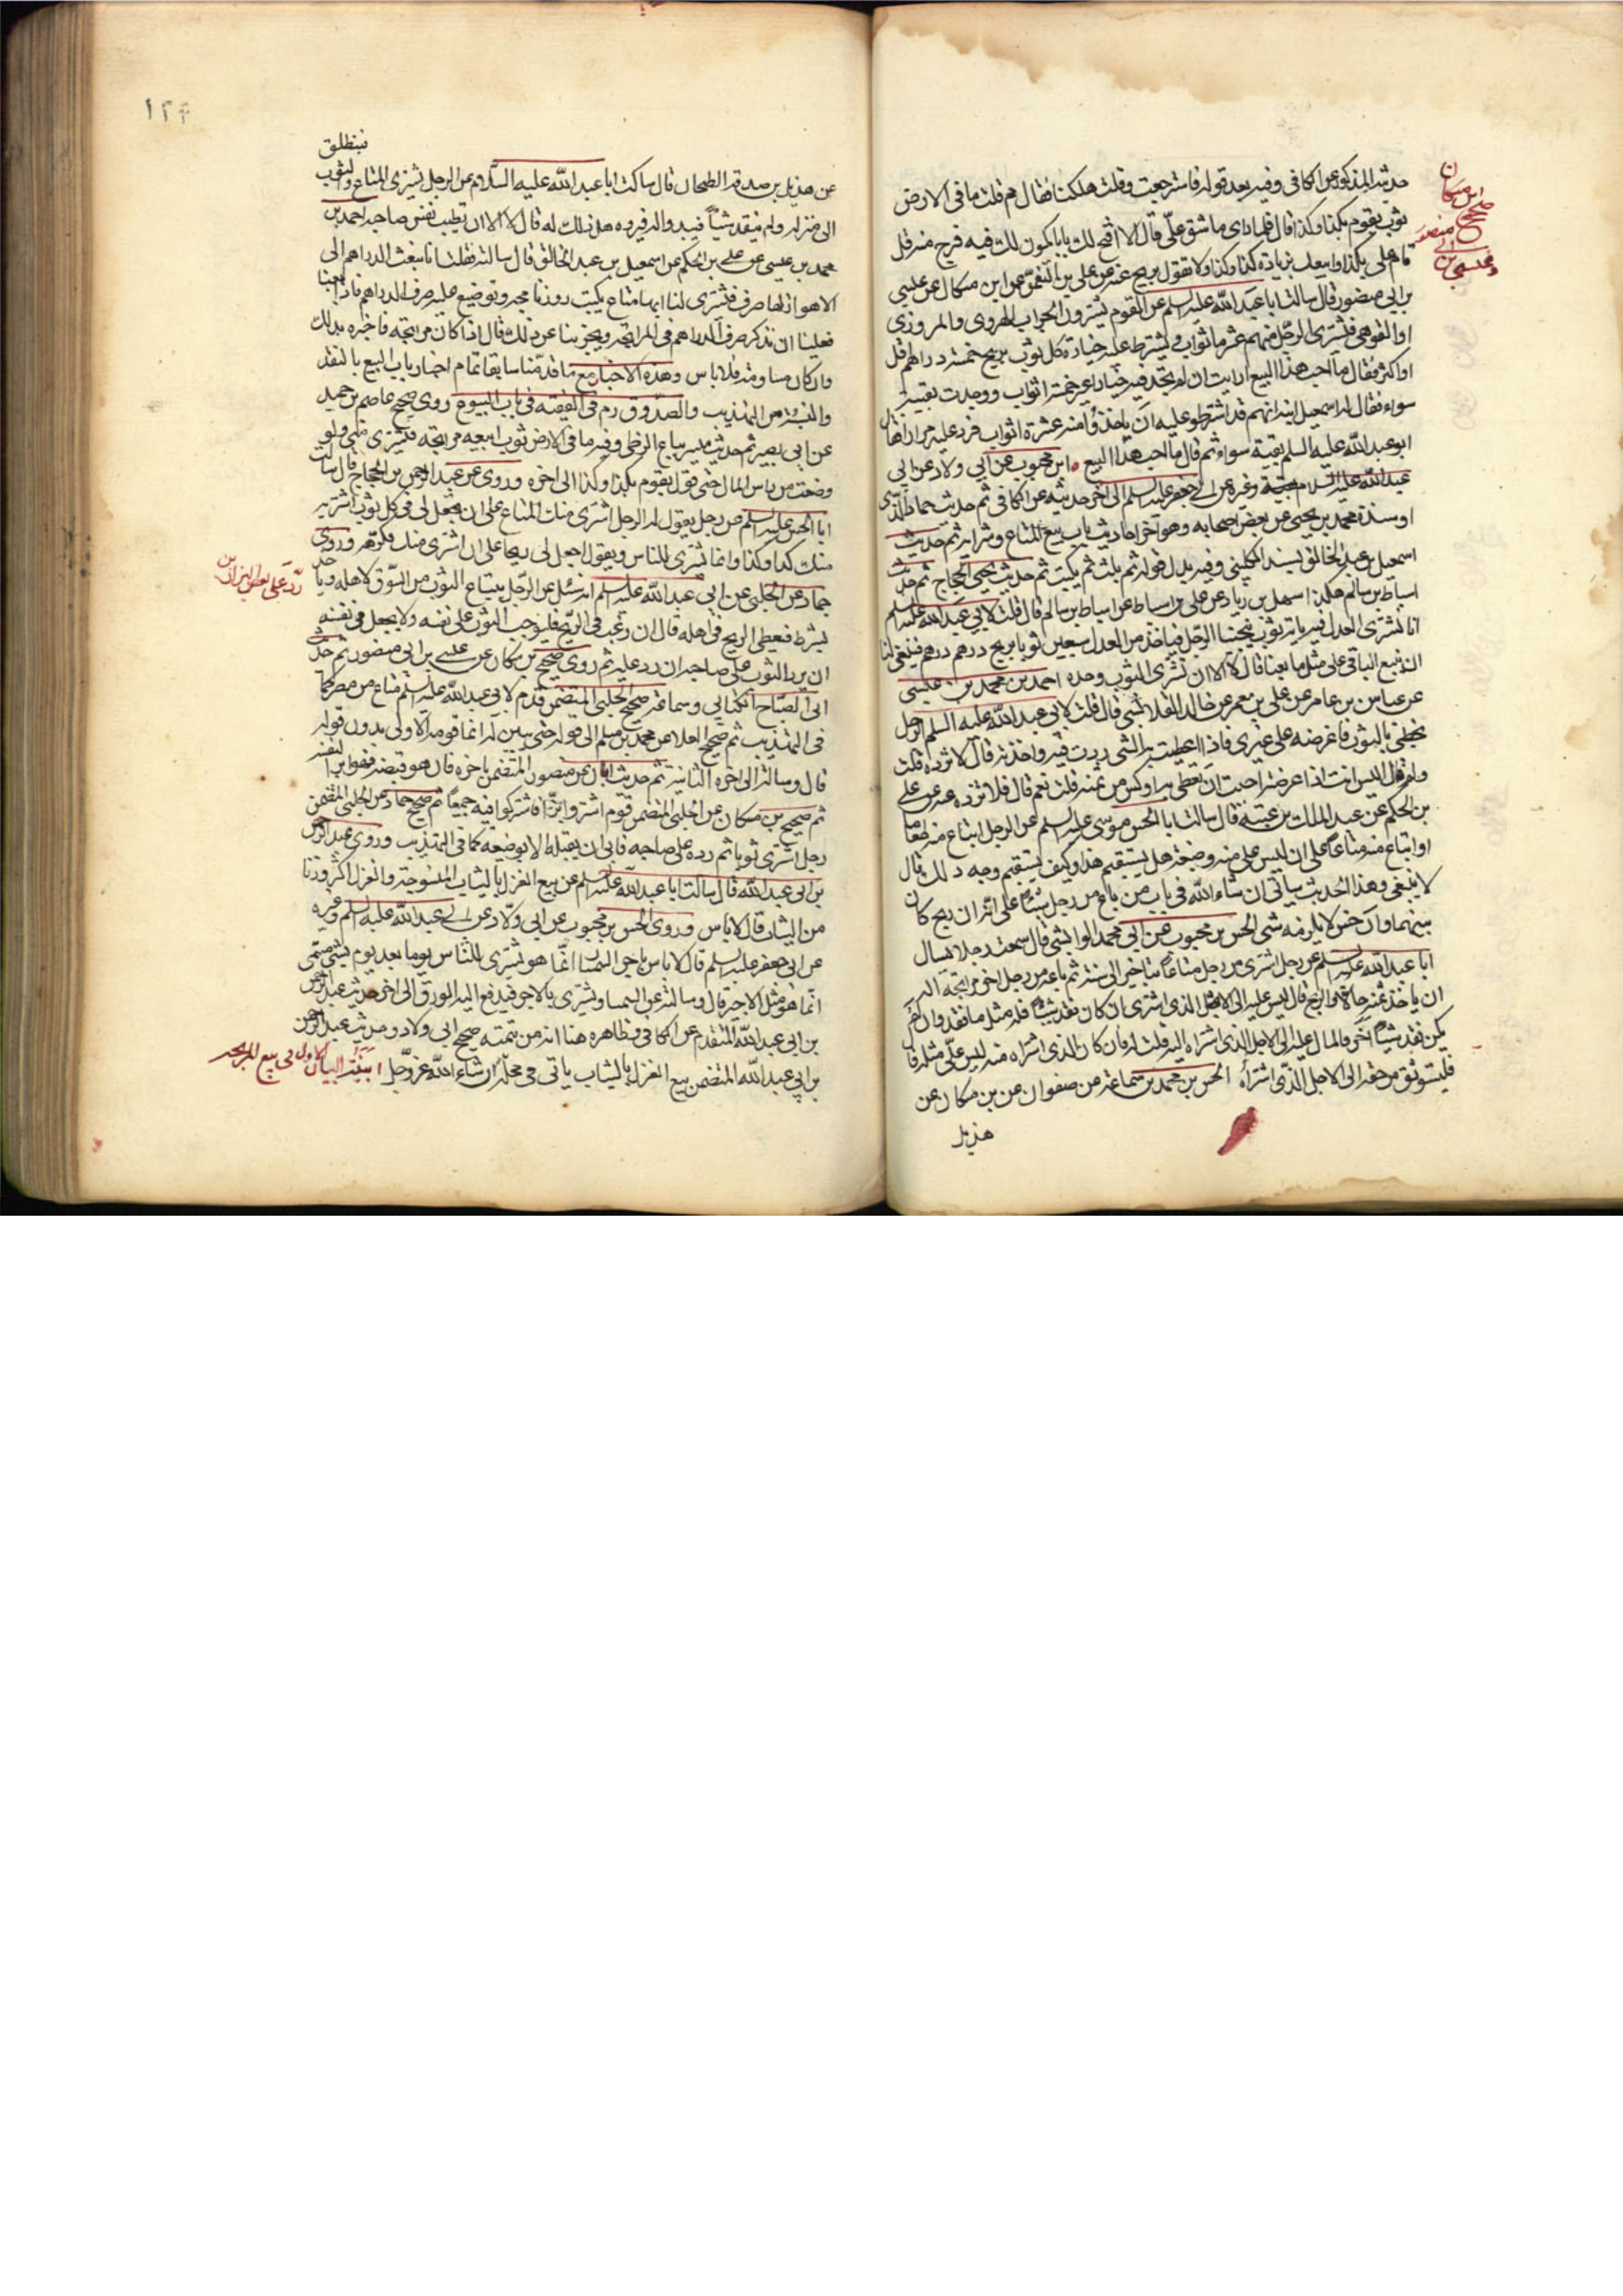 حديثه المذكور عن الكافى وفيه بعد قوله فاسترجعت وقلت هلكنا فقال مم قلت ما فى الارض
ثوب يقوم بكذا وكذا قال فلما راى ما شق علىّ قال الا افتح لك بابا يكون لك فيه فرج منه قل
قام على بكذا وابيعك بزيادة كذا وكذا ولا تقول بربح عنه عن على بن النعمن عن ابن مسكان عن عيسى
بن ابى منصور قال سالت ابا عبد الله عليه السلم عن القوم يشترون الجراب الهروى والمروزى
او القوهى فيشترى الرجل منهم عشرة اثواب فيشترط عليه خياره كل ثوب بربح خمسة دراهم اقل
او اكثر فقال ما احب هذا البيع ارايت ان لم يجد فيه خيارا غير خمسة اثواب ووجدت بقيته
سواء فقال له اسمعيل ابنه انهم قد اشترطوا عليه ان ياخذوا منه عشرة اثواب فرد عليه مرارا فقال
ابو عبد الله عليه السلم بقيته سواء ثم قال ما احب هذا البيع ابن محبوب عن ابى ولاد عن ابى
عبد الله عليه السلام وغيره عن ابى جعفر عليه السلم الى اخر حديثه عن الكافى ثم حديث حماد الذى
اوسنده محمد بن يحيى عن بعض اصحابه وهو اخر احاديث باب بيع المتاع وشرائه ثم حديث
اسمعيل بن عبد الخالق بسند الكلينى وفيه بدل قوله ثم يلبث ثم يكتب ثم حديث يحيى الحجاج ثم حديث
اسباط بن سالم هكذا سهل بن زياد عن على بن اسباط عن اسباط بن سالم قال قلت لابى عبد الله عليه السلم
انا نشترى العدل فيه ماية ثوب فيجيئنا الرجل فياخذ من العدل سبعين ثوبا بربح درهم درهم فينبغى لنا
ان نبيع الباقى على مثل ما بعنا قال لا الا ان نشترى الثوب وحده احمد بن محمد بن عيسى
عن عباس بن عامر عن على بن معمر عن خالد القلانسى قال قلت لابى عبد الله عليه السلم الرجل
يجيئنى بالثوب فاعرضه على غيرى فاذا اعطيت به الشى زدت فيه واخذته قال لا تزده قلت
ولم قال اليس انت اذا عرضته احببت ان تعطى به اوكس من ثمنه قلت نعم قال فلا تزده عنه عن على
بن الحكم عن عبد الملك بن عتبة قال سالت ابا الحسن موسى عليه السلم عن الرجل ابتاع منه طعاما
او ابتاع منه متاعا على ان ليس على منه وضيعة هل يستقيم هذا وكيف يستقيم وجه ذلك قال
لا ينبغى وهذا الحديث سياتى ان شاء الله فى باب من باع من رجل شيئا على انه ان ربح كان
بينهما وان خسر لا يلزمه شى الحسن بن محبوب عن ابى محمد الوابشى قال سمعت رجلا يسال
ابا عبد الله عليه السلم عن رجل اشترى من رجل متاعا بتاخير الى سنة ثم باعه من رجل اخر مرابحة اله
ان ياخذ ثمنه حالا والربح قال ليس عليه الا مثل الذى اشترى ان كان نقد شيئا فله مثل ما نقد وان لم
يكن نقد شيئا اخر فالمال عليه الى الاجل الذى اشتراه اليه قلت له فان كان الذى اشتراه منه ليس علىّ مثله قال
فليستوثق من حقه الى الاجل الذى اشتراه الحسن بن محمد بن سماعة عن صفوان عن بن مسكان عن
هذيل
ابن مسكان
صحيح
منصور
وعيسى بن ابى
١٢٢
فينطلق
عن هذيل بن صدقة الطحان قال سالت ابا عبد الله عليه السلام عن الرجل يشترى المتاع او الثوب
الى منزله ولم ينقد شيئا فيبدو له فيرده هل ذلك له قال لا الا ان تطيب نفس صاحبه احمد بن
محمد بن عيسى عن على بن الحكم عن اسمعيل بن عبد الخالق قال سالته فقلت انا نبعث الدراهم الى
الاهواز لها صرف فيشترى لنا بها متاع ثم يكتب روزنامجه ويوضع عليه صرف الدراهم فاذا بعنا
فعلينا ان نذكر صرف الدراهم فى المرابحة ويجزينا عن ذلك قال اذا كان مرابحة فاخبره بذلك
وان كان مساومة فلا باس وهذه الاخبار مع ما قدمنا سابقا تمام اخبار باب البيع بالنقد
والنسية من التهذيب والصدوق ره فى الفقيه فى باب البيوع روى صحيح عاصم بن حميد
عن ابى بصير ثم حديث ميسر بياع الزطى وفيه ما فى الارض ثوب ابيعه مرابحة فيشترى منى ولو
وضعت من راس المال حتى اقول يقوم بكذا وكذا الى اخره وروى عن عبد الرحمن بن الحجاج قال سالت
ابا الحسن عليه السلم عن رجل يقول له الرجل اشترى منك المتاع على ان تجعل لى فى كل ثوب اشتريه
منك كذا وكذا وانما يشترى للناس ويقول اجعل لى ربحا على ان اشترى منك فكرهه وروى
حماد عن الحلبى عن ابى عبد الله عليه السلم انه سئل عن الرجل يبتاع الثوب من السوق لاهله وياخذه
بشرط فيعطى الربح فى اهله قال ان رغب فى الربح فليوجب الثوب على نفسه ولا يجعل فى نفسه
ان يرد الثوب على صاحبه ان رد عليه ثم روى صحيح بن مسكان عن عيسى بن ابى منصور ثم حديث
ابى الصباح الكنانى وسماعة ثم صحيح الحلبى المتضمن قدم لابى عبد الله عليه السلم متاع من مصر كما
فى التهذيب ثم صحيح العلا عن محمد بن مسلم الى قوله حتى يبين له انما قومه الاولى بدون قوله
قال وسالته الى اخره الثانية ثم حديث ابان عن منصور المتضمن باخره قال هو قبضه
ثم صحيح بن مسكان عن الحلبى المتضمن قوم اشتروا بزا فاشتركوا فيه جميعا ثم صحيح حماد عن الحلبى المتضمن
رجل اشترى ثوبا ثم رده على صاحبه فابى ان يقبله الا بوضيعة كما فى التهذيب وروى عبد الرحمن
بن ابى عبد الله قال سالت ابا عبد الله عليه السلم عن بيع الغزل بالثياب المنسوجة والغزل اكثر وزنا
من الثياب قال لا باس وروى الحسن بن محبوب عن ابى ولاد عن ابى عبد الله عليه السلم وغيره
عن ابى جعفر عليه السلم قال لا باس باجر السمسار انما هو يشترى للناس يوما بعد يوم بشى مسمى
انما هو مثل الاجير قال وسالته عن السمسار يشترى بالاجر فيدفع اليه الورق الى اخر حديث عبد الرحمن
بن ابى عبد الله المتقدم عن الكافى وظاهره هنا انه من تتمة صحيح ابى ولاد وحديث عبد الرحمن
بن ابى عبد الله المتضمن بيع الغزل بالثياب ياتى فى محله ان شاء الله عز وجل
البيان الاول فى بيع المرابحة